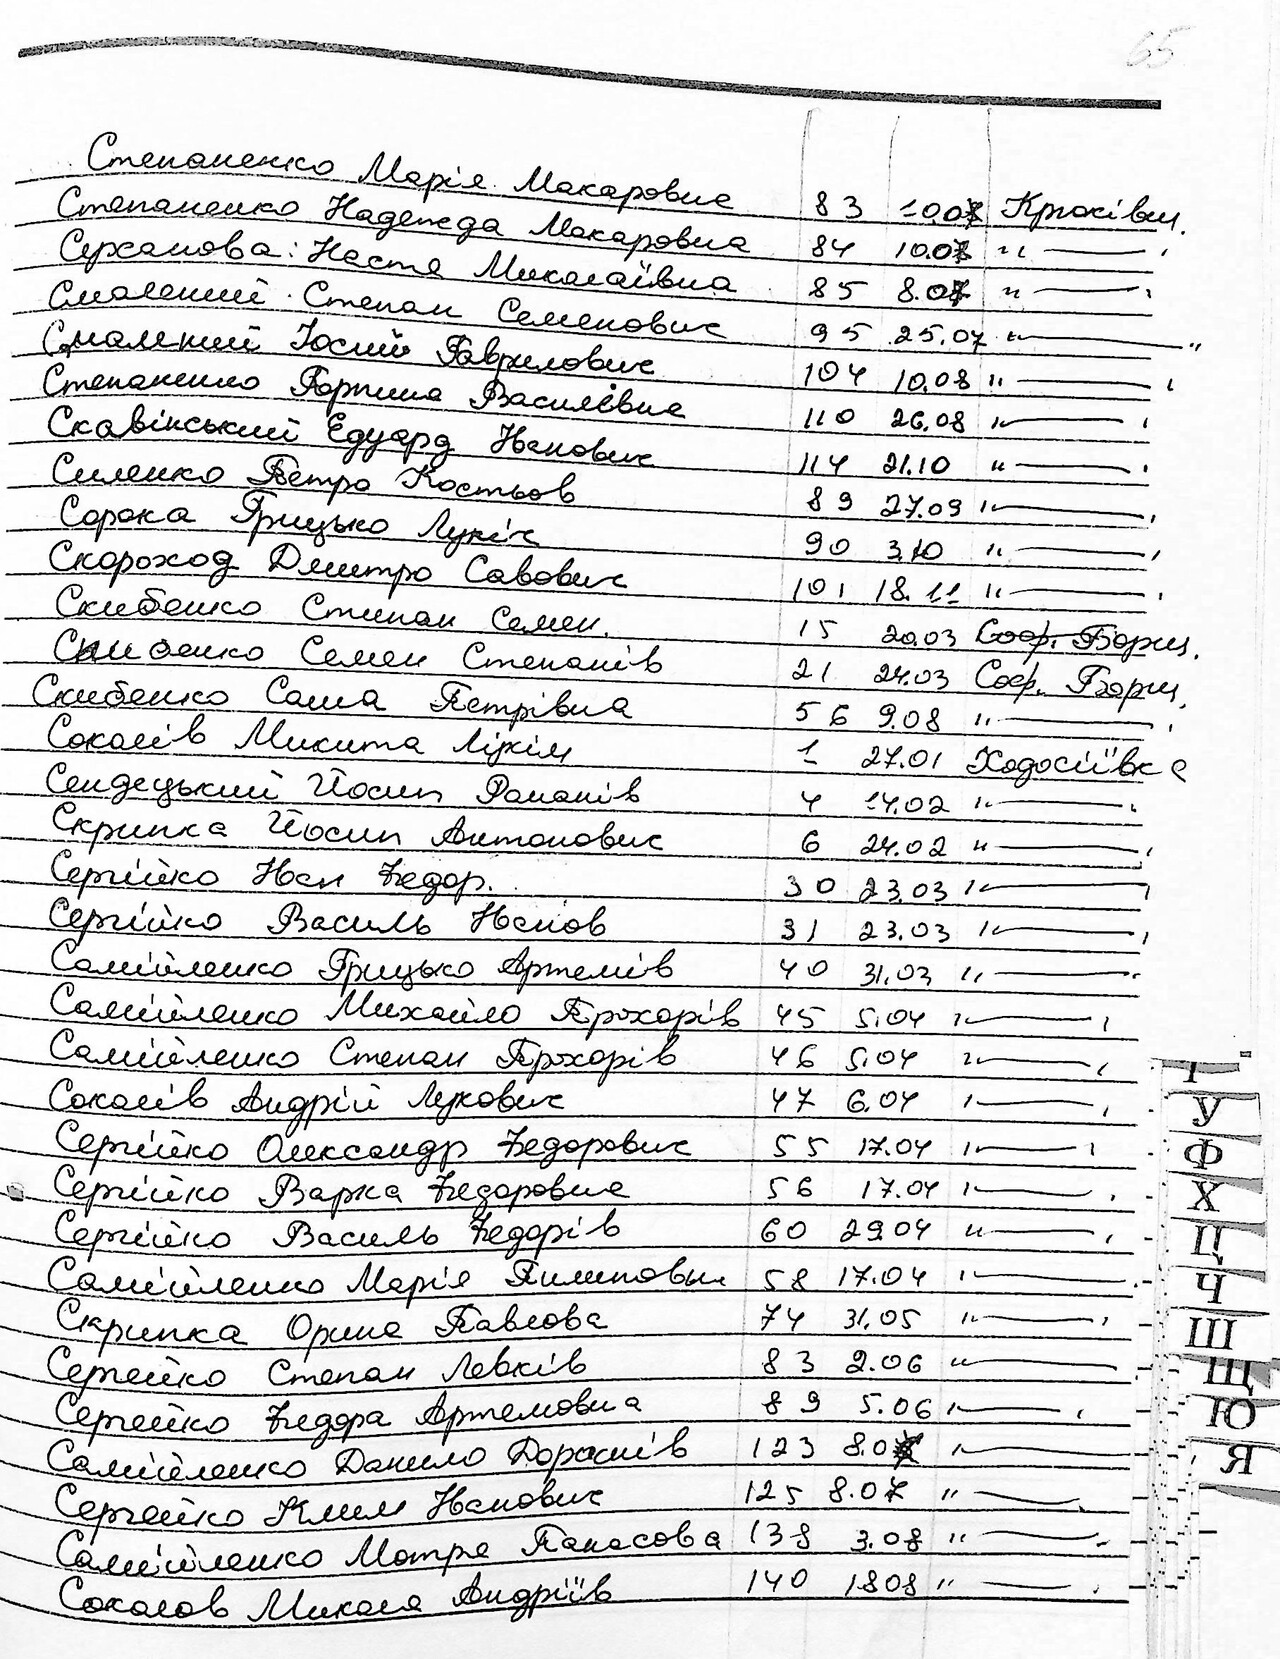 65
Степаненко Марія Макаровна 83 10.07 Крюківщ.
Степаненко Надежда Макаровна 84 10.07 " .
Серханова: Настя Миколаївна 85 8.07 " .
Смалений Степан Семенович 95 25.07 " "
Смаленний Юсий Гаврилович 104 10.08 " .
Степаненко Горпина Василівна 110 26.08 " .
Скавінський Едуард Іванович 114 21.10 " .
Силенко Петро Костьов 89 27.09 " .
Сорока Грицько Лукіч 90 3.10 " .
Скороход Дмитро Савович 101 18.11 " .
Скибенко Степан Семен. 15 20.03 Соф. Борщ.
Скибенко Семен Степанів 21 24.03 Соф. Борщ.
Скибенко Саша Петрівна 56 9.08 " .
Соколів Микита 1 27.01 Ходосіївка
Сендецький Йосип Романів 4 14.02 " .
Скрипка Йосип Антонович 6 24.02 " .
Сергійко Іван Федор. 30 23.03 "
Сергійко Василь Іванов 31 23.03 " .
Самійленко Грицько Артемів 40 31.03 " .
Самійленко Михайло Прохорів 45 5.04 " .
Самійленко Степан Прохорів 46 5.04 " .
Соколів Андрій Лукович 47 6.04 " .
Сергійко Олександр Федорович 55 17.04 "
Сергійко Варка Федоровна 56 17.04 " .
Сергійко Василь Федорів 60 29.04 " .
Самійленко Марія Пилиповн 58 17.04 " .
Скрипка Орина Павлова 74 31.05 " .
Сергейко Степан Левків 83 2.06 "
Сергейко Федора Артемовна 89 5.06 " .
Самійленко Данило Дорошів 123 8.07 "
Сергейко Клим Іванович 125 8.07 " .
Самійленко Мотря Панасова 138 3.08 " .
Соколов Микола Андріїв 140 18.08 " .
Т
У
Ф
Х
Ц
Ч
Ш
Щ
Ю
Я